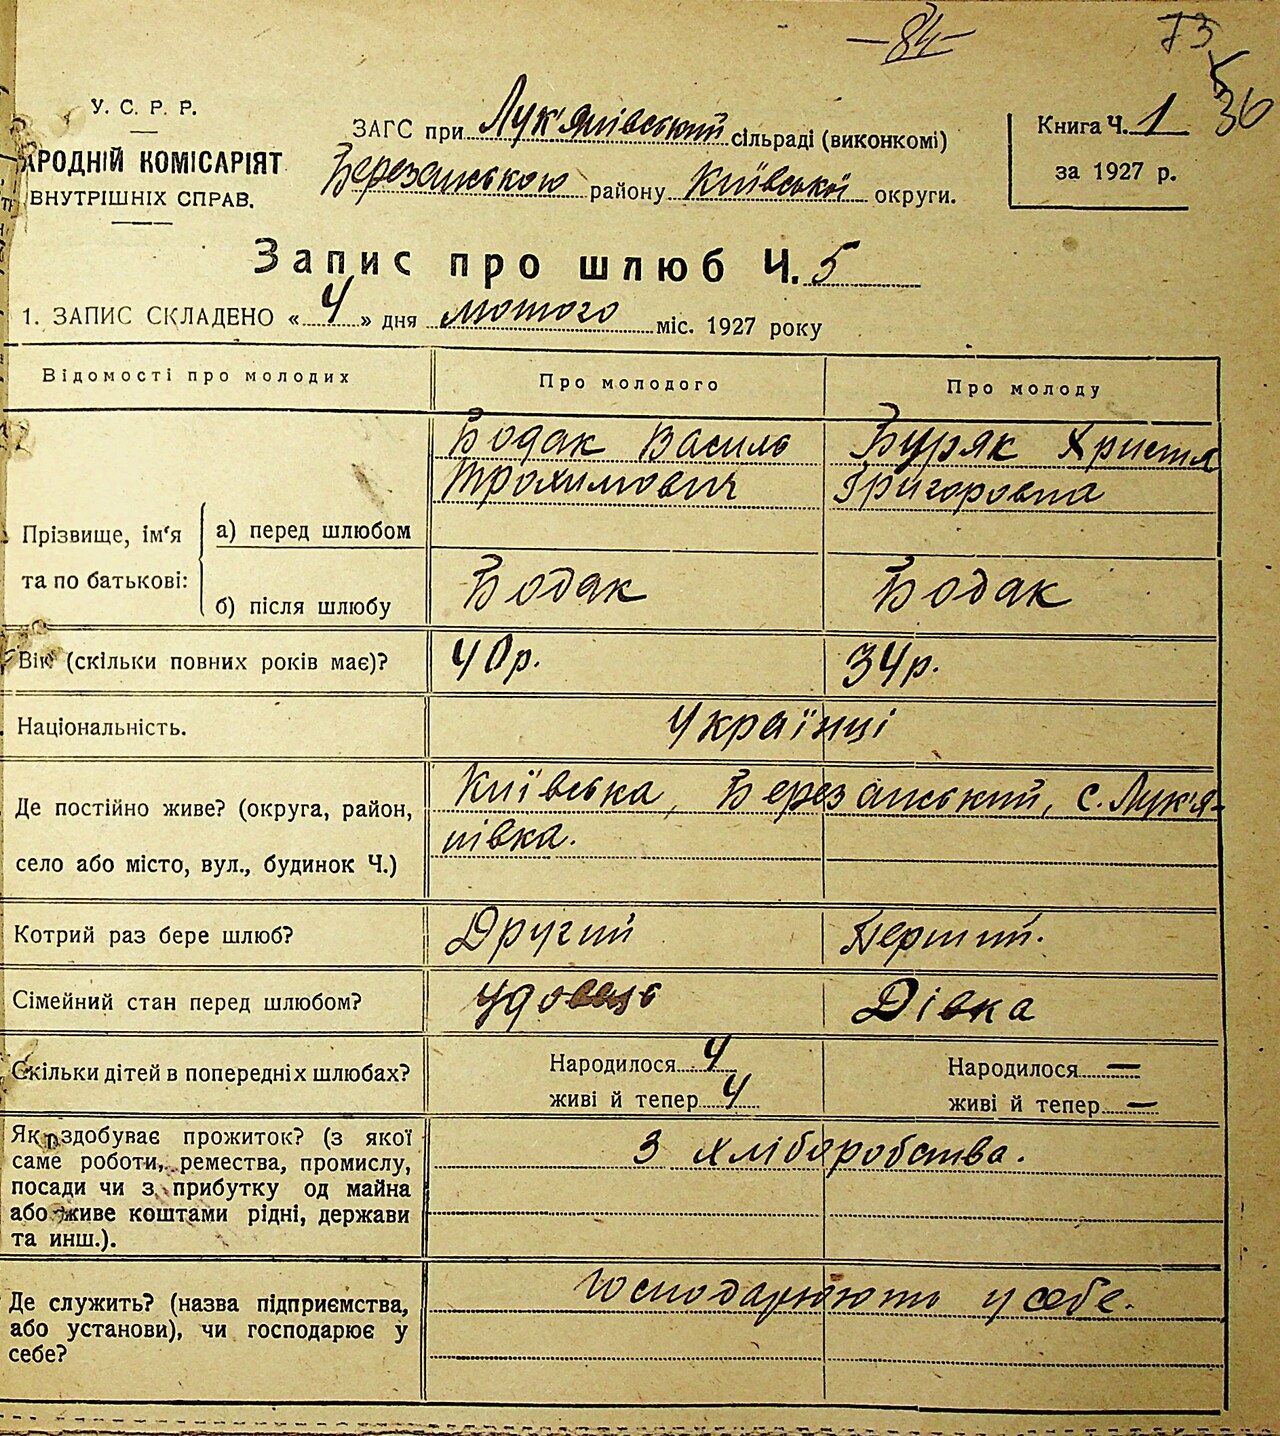 —84—
73
36
У. С. Р. Р.
НАРОДНІЙ КОМІСАРІЯТ
ВНУТРІШНІХ СПРАВ.
ЗАГС при Лук'янівський сільраді (виконкомі)
Березанською району Київської округи.
Книга Ч. 1
за 1927 р.
Запис про шлюб Ч. 5
1. ЗАПИС СКЛАДЕНО «4» дня лютого міс. 1927 року
Відомості про молодих Про молодого Про молоду
Бодак Василь Буряк Христя
Трохимович Григоровна
Прізвище, ім'я та по батькові: а) перед шлюбом
б) після шлюбу Бодак Бодак
Вік (скільки повних років має)? 40р. 34р.
Національність. Українці
Де постійно живе? (округа, район, Київська, Березанський, с. Лук'я-
село або місто, вул., будинок Ч.) нівка.
Котрий раз бере шлюб? Другий Перший.
Сімейний стан перед шлюбом? Удовець Дівка
Скільки дітей в попередніх шлюбах? Народилося 4 Народилося —
живі й тепер 4 живі й тепер —
Як здобуває прожиток? (з якої З хліборобства.
саме роботи, ремества, промислу,
посади чи з прибутку од майна
або живе коштами рідні, держави
та инш.).
Де служить? (назва підприємства, Господарюють у себе.
або установи), чи господарює у
себе?